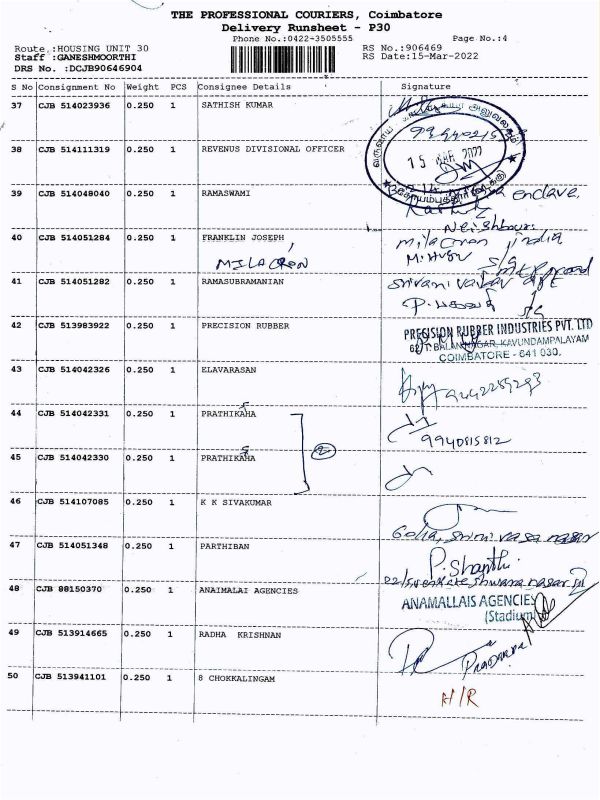 THE PROFESSIONAL COURIERS, Coimbatore
Delivery Runsheet - P30
Phone No.:0422-3505555 Page No.:4
Route :HOUSING UNIT 30 RS No.:906469
Staff :GANESHMOORTHI RS Date:15-Mar-2022
DRS No. :DCJB90646904
S No Consignment No Weight PCS Consignee Details Signature
37 CJB 514023936 0.250 1 SATHISH KUMAR
38 CJB 514111319 0.250 1 REVENUS DIVISIONAL OFFICER
15 MAR 2022
39 CJB 514048040 0.250 1 RAMASWAMI enclave,
Neighbour
40 CJB 514051284 0.250 1 FRANKLIN JOSEPH milacron india
MILACRON
41 CJB 514051282 0.250 1 RAMASUBRAMANIAN
42 CJB 513983922 0.250 1 PRECISION RUBBER PRECISION RUBBER INDUSTRIES PVT. LTD
62, T. BALAN NAGAR, KAVUNDAMPALAYAM
COIMBATORE - 641 030.
43 CJB 514042326 0.250 1 ELAVARASAN
44 CJB 514042331 0.250 1 PRATHIKAHA
9940815812
2
45 CJB 514042330 0.250 1 PRATHIKAHA
46 CJB 514107085 0.250 1 K K SIVAKUMAR
47 CJB 514051348 0.250 1 PARTHIBAN P. Shanthi
48 CJB 88150370 0.250 1 ANAIMALAI AGENCIES ANAMALLAIS AGENCIES
(Stadium)
49 CJB 513914665 0.250 1 RADHA KRISHNAN
50 CJB 513941101 0.250 1 S CHOKKALINGAM
H/R